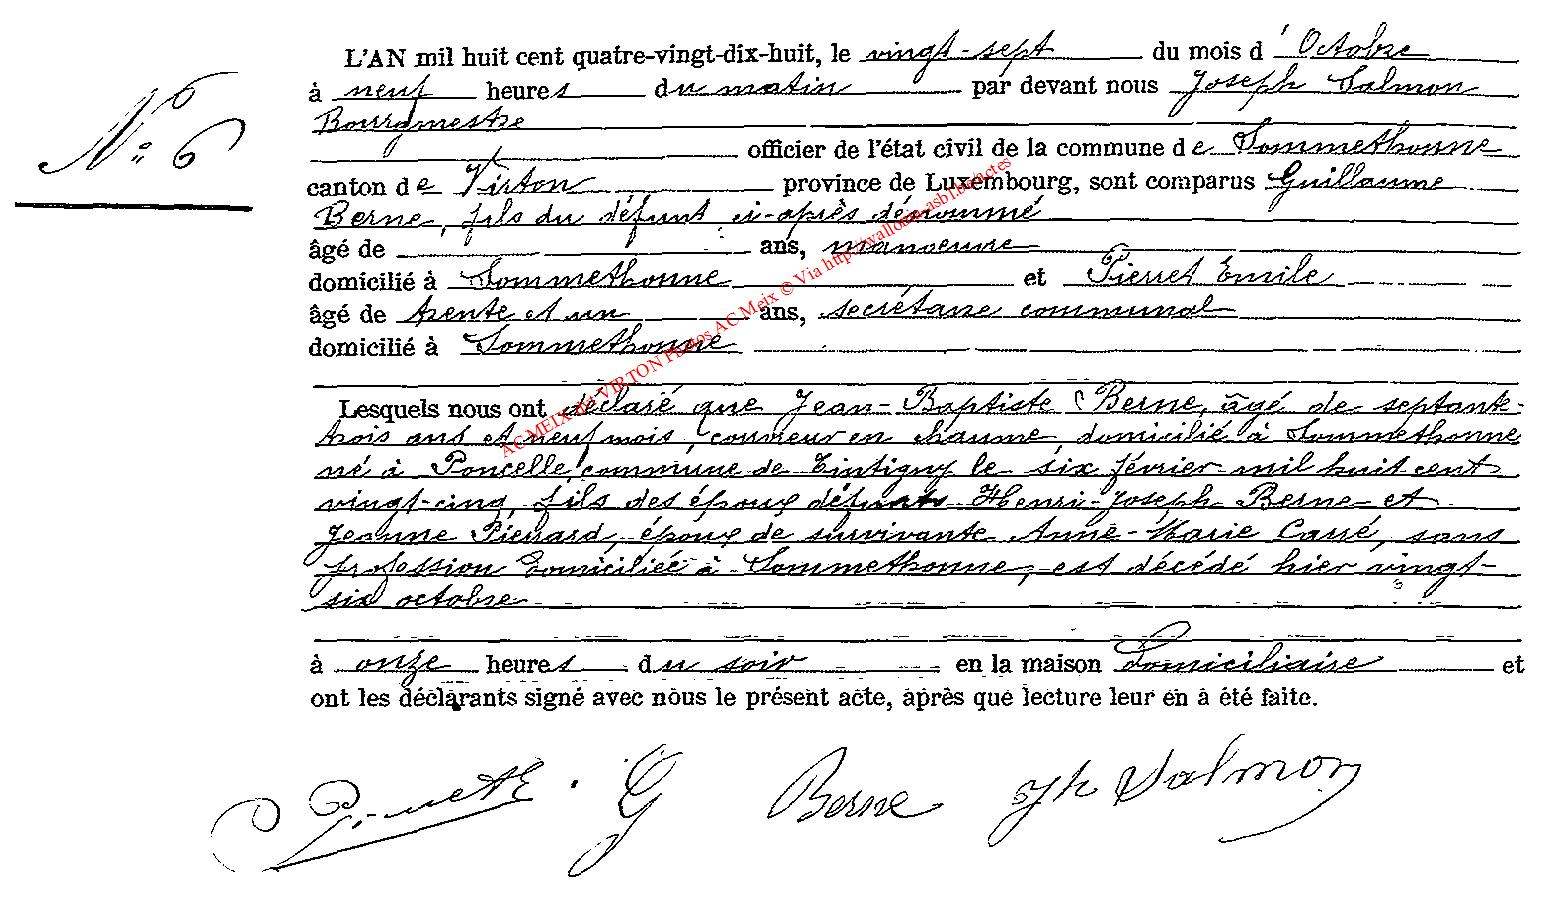 L'AN mil huit cent quatre-vingt-dix-huit, le vingt-sept du mois d' Octobre
à neuf heures du matin par devant nous Joseph Salmon
Bourgmestre
N° 6
officier de l'état civil de la commune de Sommethonne
canton de Virton province de Luxembourg, sont comparus Guillaume
Berne, fils du défunt ci-après dénommé
âgé de ans, manoeuvre
domicilié à Sommethonne et Pierret Emile
âgé de trente et un ans, secrétaire communal
domicilié à Sommethonne
AC MEIX dvt VIRTON Photos AC Meix © Via http://wallonia-asbl.be/actes
Lesquels nous ont déclaré que Jean-Baptiste Berne, âgé de septante-
trois ans et neuf mois, couvreur en chaume, domicilié à Sommethonne
né à Poncelle, commune de Tintigny le six février mil huit cent
vingt-cinq, fils des époux défunts Henri-Joseph Berne et
Jeanne Piérrard, époux de survivante Anne-Marie Carré, sans
profession domiciliée à Sommethonne, est décédé hier vingt-
six octobre
à onze heures du soir en la maison domiciliaire et
ont les déclarants signé avec nous le présent acte, après que lecture leur en a été faite.
G Berne Jh Salmon